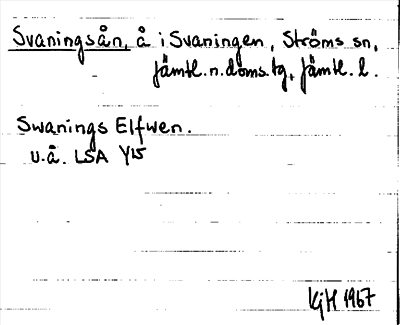 Svaningsån, å i Svaningen, Ströms sn,
Jämtl.n.doms.tg, Jämtl. l.
Swanings Elfwen.
u.å. LSA Y15
KjH 1967